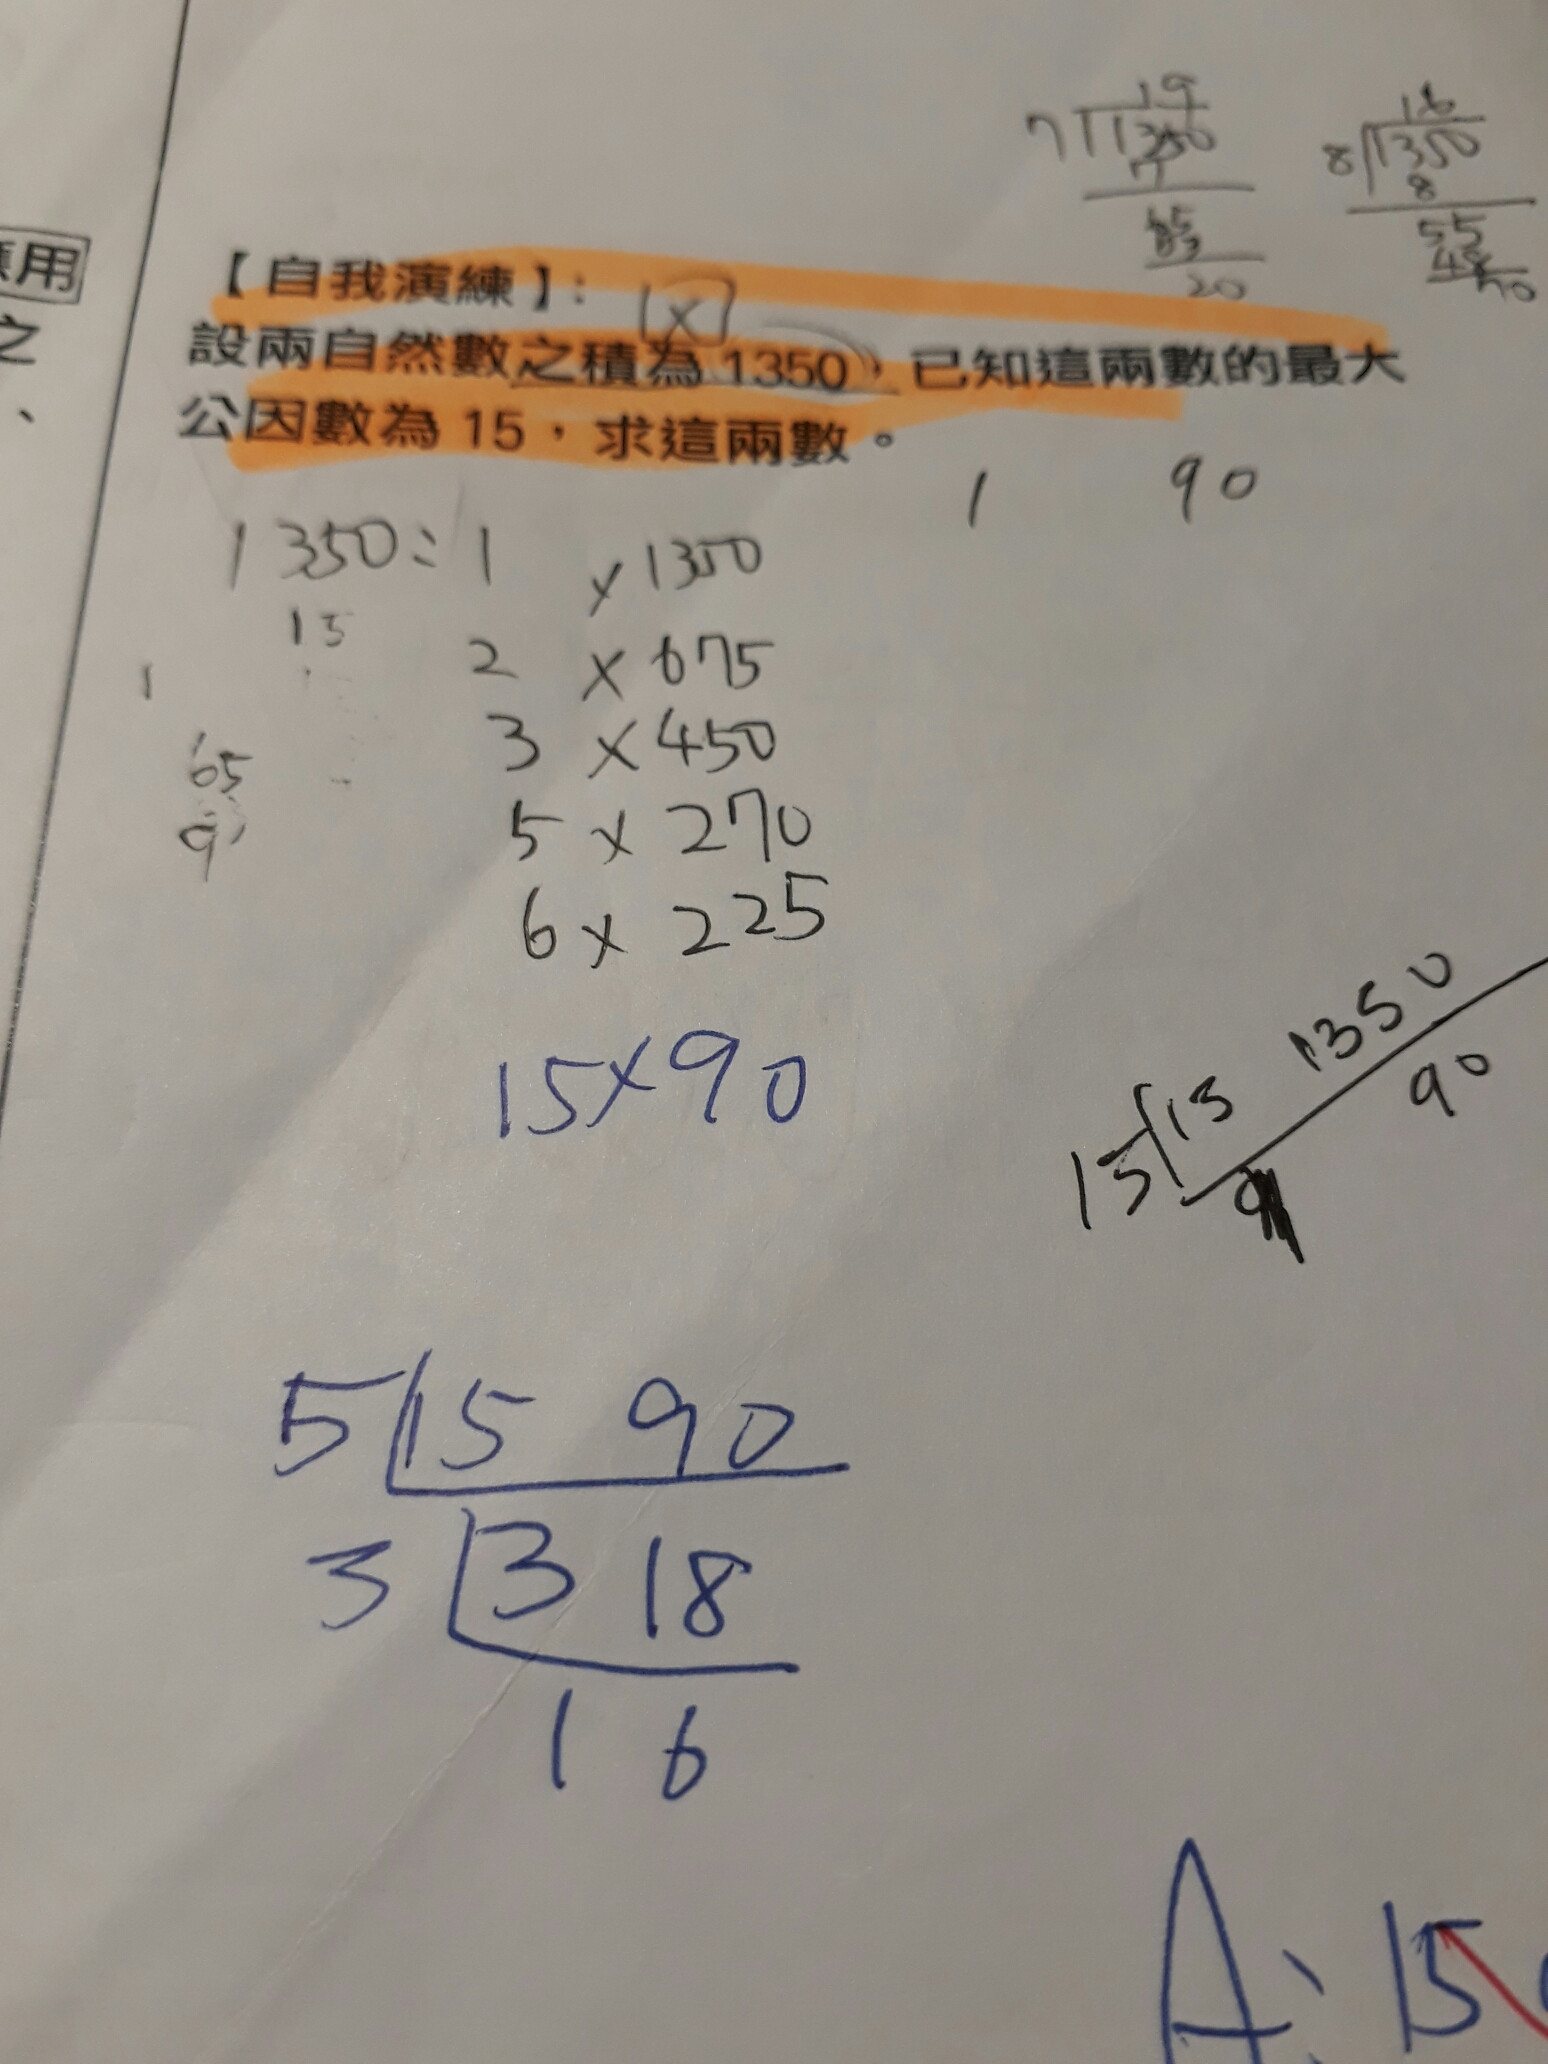 19
7 1350
7
65
63
20
16
8 1350
8
55
48
用
之
、
【自我演練】:
設兩自然數之積為1350,已知這兩數的最大
公因數為15,求這兩數。
1 90
1350= 1 × 1350
15
2 × 675
1
3 × 450
65
5 × 270
9
6 × 225
15 × 90
15 15 1350
90
5 15 90
3 3 18
1 6
A: 15